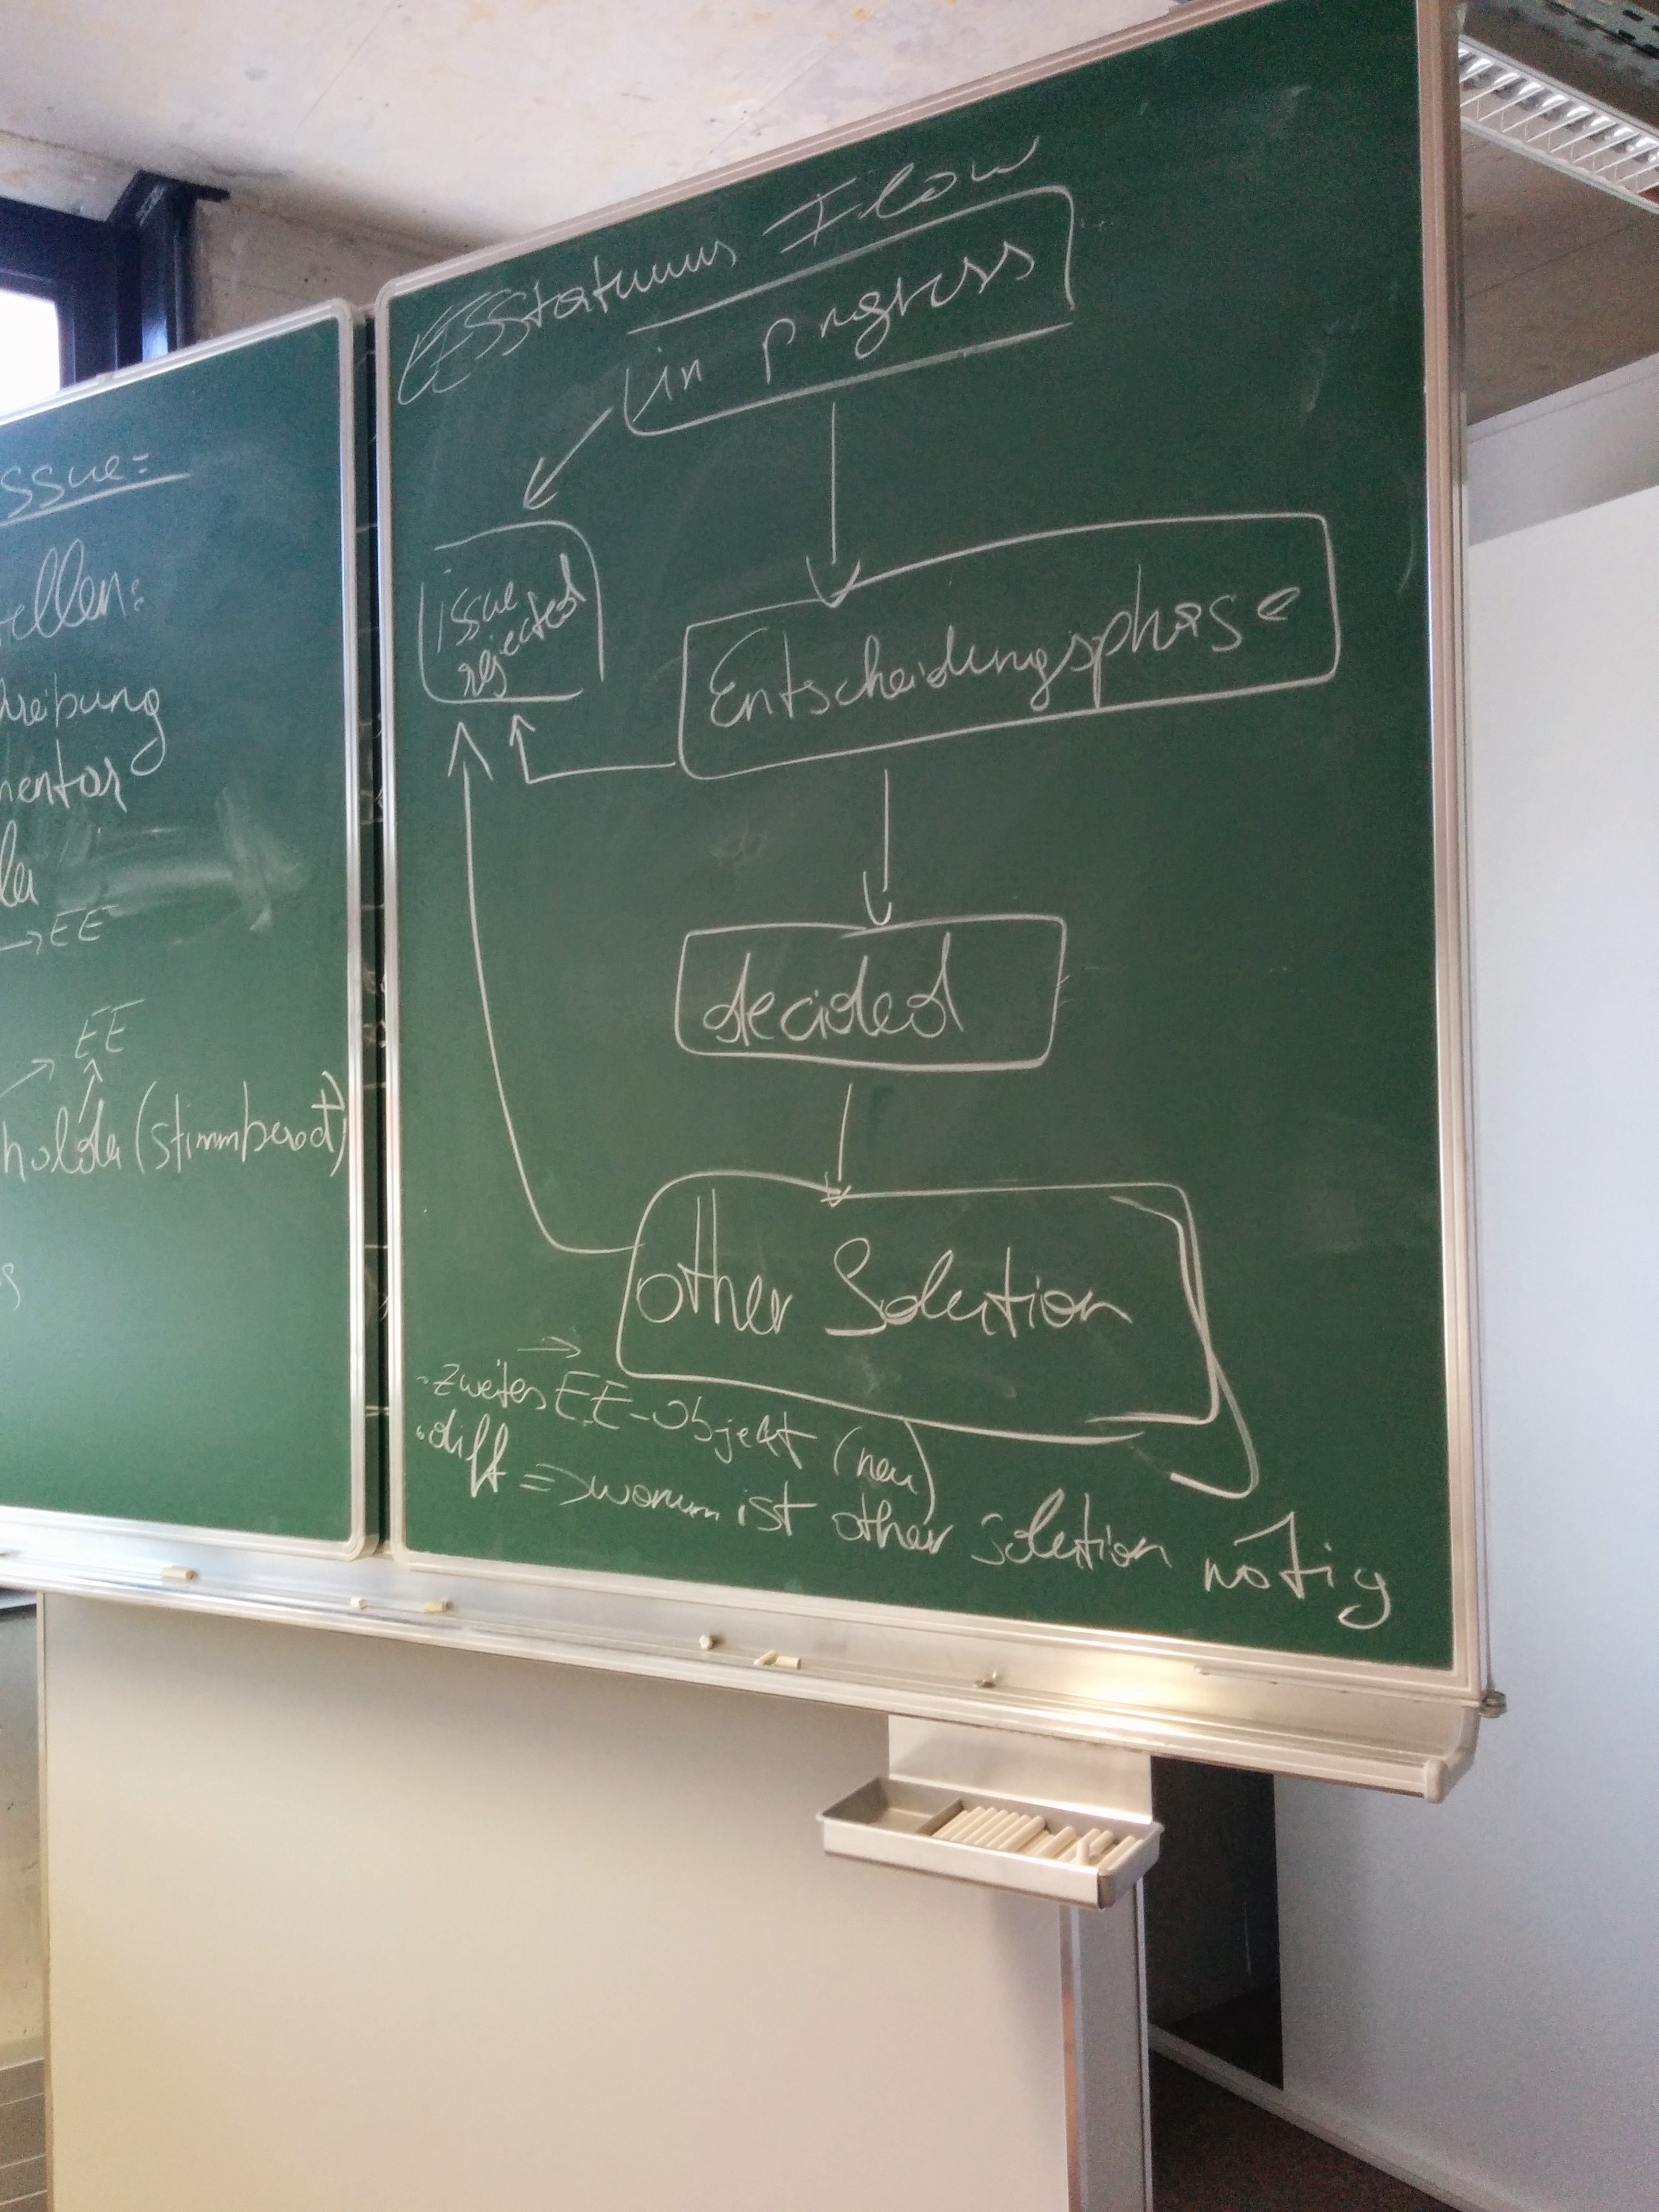 ssue:
ellen:
hreibung
mentar
→EE
EE
holder (stimmberecht)
EEStatuuus Flow
in progress
issue
rejected
Entscheidungsphase
decided
other Solution
→
• zweites EE-Objekt (neu)
• diff => warum ist other solution nötig